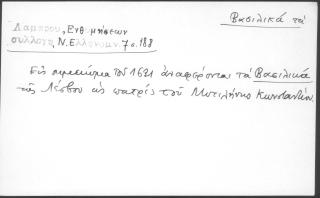 Βασιλικά τά
Λαμπρου, Ενθυμήσεων
συλλογή, Ν. Ελληνομν. 7ος 188
Εἰς σημείωμα τοῦ 1621 ἀναφέρονται τά Βασιλικά
τῆς Λέσβου ὡς πατρίς τοῦ Μυτιλήνης Κωνσταντίνου.